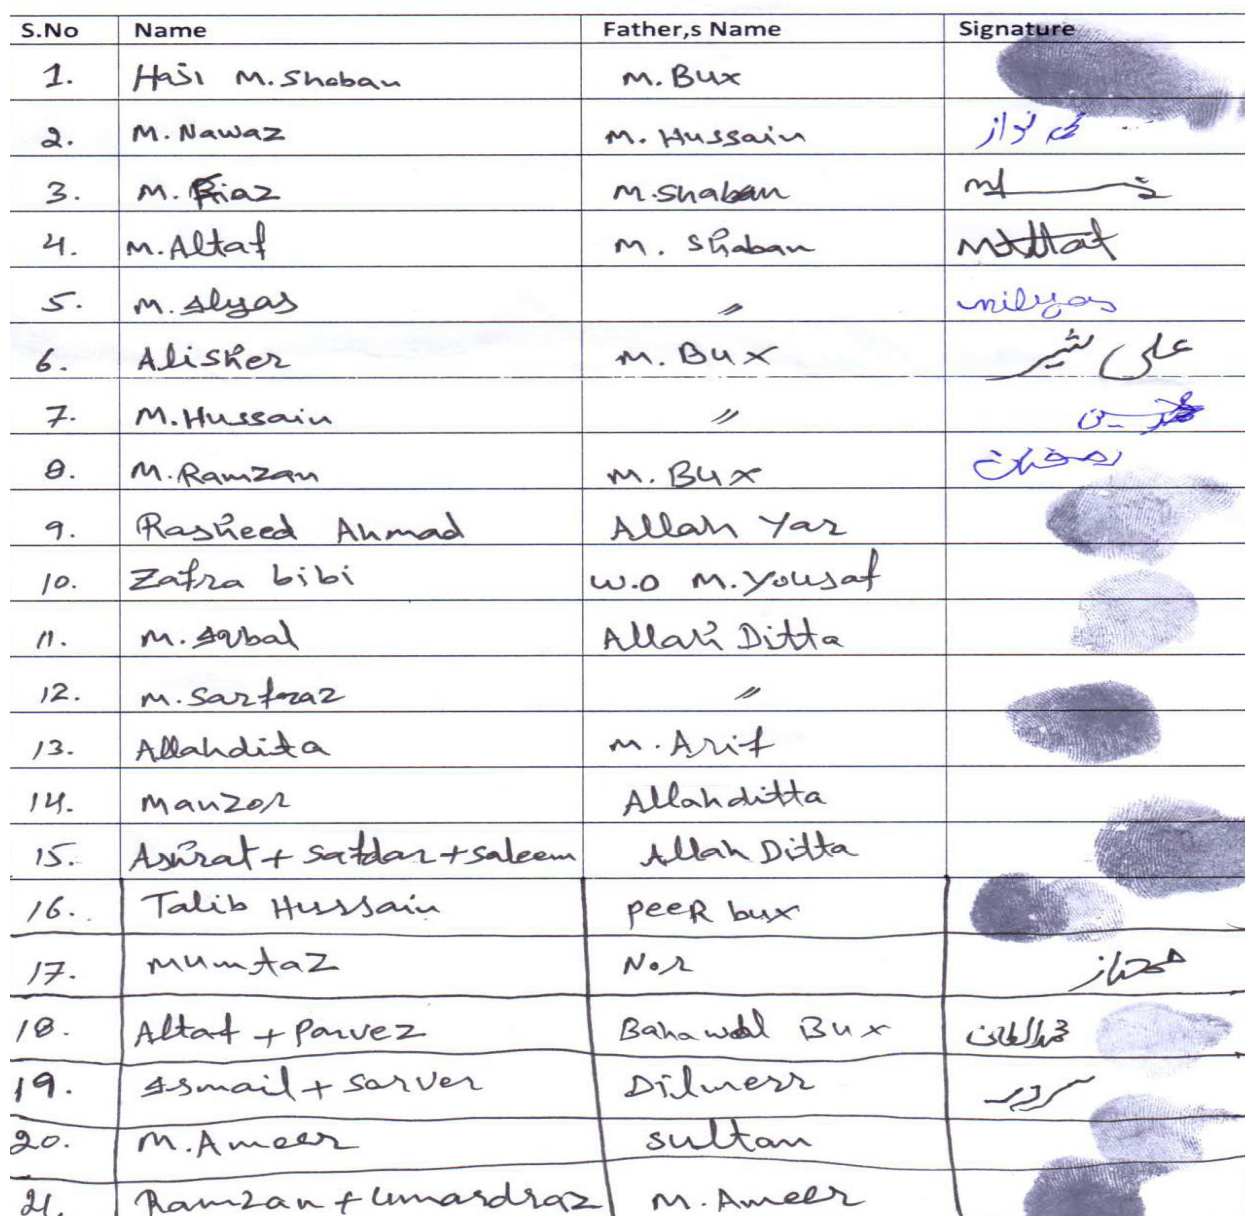 S.No Name Father,s Name Signature
1. Haji M. Shaban M. Bux
2. M. Nawaz M. Hussain محمد نواز
3. M. Riaz M. Shaban
4. M. Altaf M. Shaban M Altaf
5. M. Ilyas 〃 milyas
6. Alisher M. Bux علی شیر
7. M. Hussain 〃 محمد حسین
8. M. Ramzan M. Bux رمضان
9. Rasheed Ahmad Allah Yar
10. Zafra bibi W.O M. Yousaf
11. M. Iqbal Allah Ditta
12. M. Sarfraz 〃
13. Allahdita M. Arif
14. Manzor Allahditta
15. Ashraf + Safdar + Saleem Allah Ditta
16. Talib Hussain PeeR bux
17. Mumtaz Nor ممتاز
18. Altaf + Parvez Bahawal Bux
19. Ismail + Sarver Dilmerr سرور
20. M. Ameer Sultan
21. Ramzan + Umardraz M. Ameer